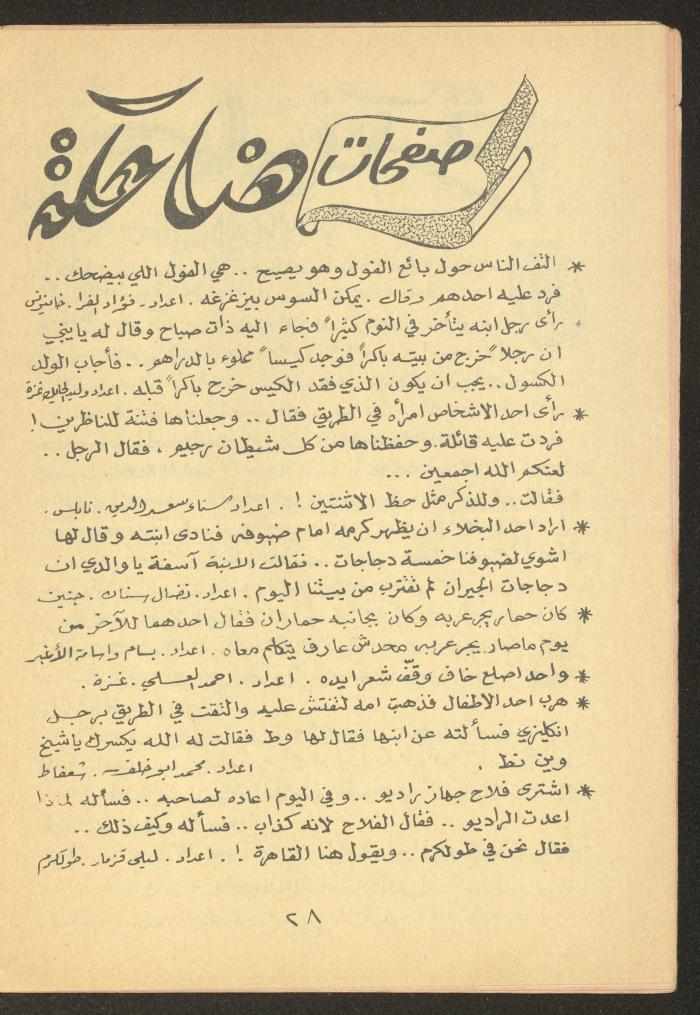 صفحات
هنا ضاحكة
* التف الناس حول بائع الفول وهو يصيح .. هي الفول اللي بيضحك ..
فرد عليه احدهم وقال . يمكن السوس بيزغزغه . اعداد . فؤاد الفرا . خانيونس
* رأى رجل ابنه يتأخر في النوم كثيراً فجاء اليه ذات صباح وقال له يا بني
ان رجلا ً خرج من بيته باكراً فوجد كيساً مملوء بالدراهم .. فأجاب الولد
الكسول .. يجب ان يكون الذي فقد الكيس خرج باكراً قبله . اعداد وليد غزة
* رأى احد الاشخاص امرأه في الطريق فقال .. وجعلناها فتنة للناظرين !
فردت عليه قائلة . وحفظناها من كل شيطان رجيم ، فقال الرجل ..
لعنكم الله اجمعين ...
فقالت .. وللذكر مثل حظ الانثتين ! . اعداد سناء سعد الدين . نابلس .
* اراد احد البخلاء ان يظهر كرمه امام ضيوفه فنادى ابنته وقال لها
اشوي لضيوفنا خمسة دجاجات .. فقالت الابنة آسفة يا والدي ان
دجاجات الجيران لم تقترب من بيتنا اليوم . اعداد . نضال . جنين
* كان حمار يجر عربه وكان بجانبه حماران فقال احدهما للآخر من
يوم ماصار يجر عربه محدش عارف يتكلم معاه . اعداد . بسام واسامة الأغبر
* واحد اصلع خاف وقفّ شعر ايده . اعداد . احمد العسلي . غزة .
* هرب احد الاطفال فذهبت امه لتفتش عليه والتقت في الطريق برجل
انكليزي فسألته عن ابنها فقال لها وط فقالت له الله يكسرك يا شيخ
وين نط . اعداد . محمد ابو خلف . شعفاط
* اشترى فلاح جهاز راديو .. وفي اليوم اعاده لصاحبه .. فسأله لماذا
اعدت الراديو .. فقال الفلاح لانه كذاب .. فسأله وكيف ذلك ..
فقال نحن في طولكرم .. ويقول هنا القاهرة ! . اعداد . ليلى قزمار . طولكرم
٢٨